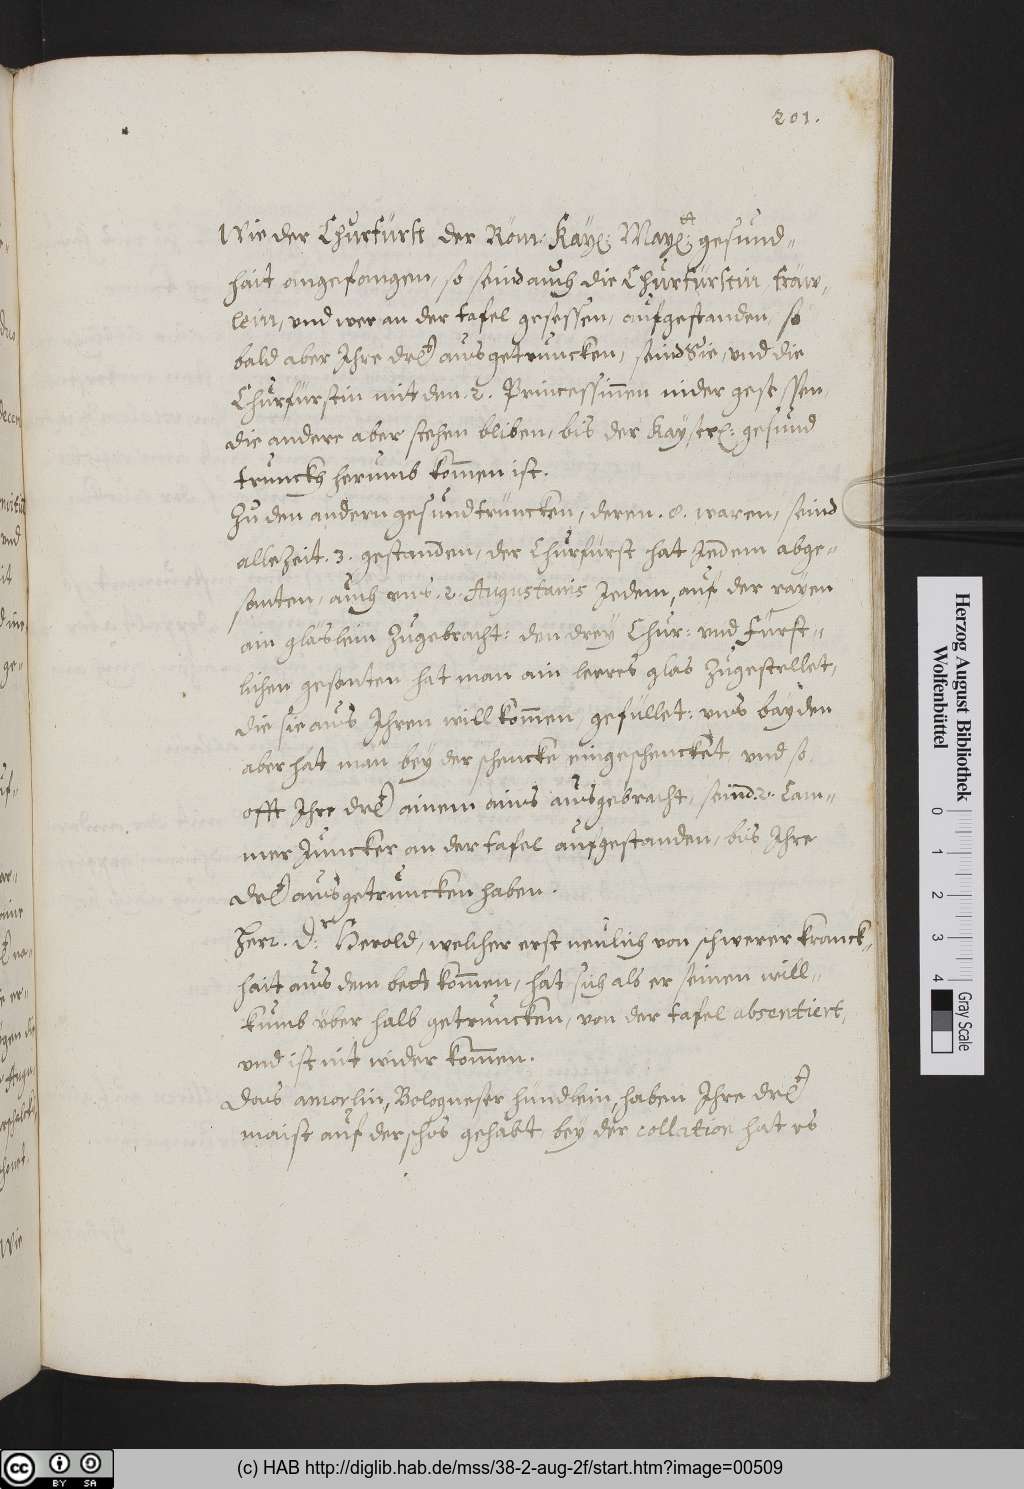 201.
Wie der Churfürst der Röm: Kaÿ: Maÿ:tt gesund-
hait angefangen, so seind auch die Churfürstin, fräw-
lein, vnd wer an der tafel gesessen, aufgestanden, so
bald aber Ihre drlt ausgetruncken, seind Sie, vnd die
Churfürstin mit den .2. Princessinen nider gesessen,
die andere aber stehen bliben, bis der Kaÿ: gesund
trunckh herumb komen ist.
Zu den andern gesundtrüncken, deren .8. waren, seind
allezeit .3. gestanden, der Churfürst hat Jedem abge-
santen, auch vns .2. Augustanis Jedem, auf der rayen
ain gläslein zugebracht: den drey Chur: vnd Fürst-
lichen gesanten hat man ain leeres glas zugestellet,
die sie aus Ihren willkomen gefüllet: vns bäyden
aber hat man bey der schencke eingeschencket, vnd so
offt Ihre drlt ainem ains ausgebracht, seind .2. Cam-
mer Juncker an der tafel aufgestanden, bis Ihre
drlt ausgetruncken haben.
Herr. D:r Herold, welcher erst neulich von schwerer kranck-
hait aus dem bett komen, hat sich als er seinen will-
kumb vber halb getruncken, von der tafel absentiert,
vnd ist nit wider komen.
Das amorlin, Bologneser hündlein, haben Ihre drlt
maist auf der schos gehabt, bey der collation hat es
Herzog August Bibliothek
Wolfenbüttel
0 1 2 3 4
Gray Scale
cc BY SA
(c) HAB http://diglib.hab.de/mss/38-2-aug-2f/start.htm?image=00509